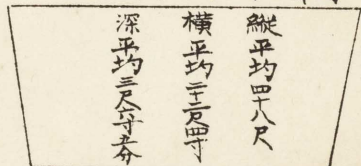 縱平均四十八尺
横平均二十二尺四寸
深平均三尺六寸五分